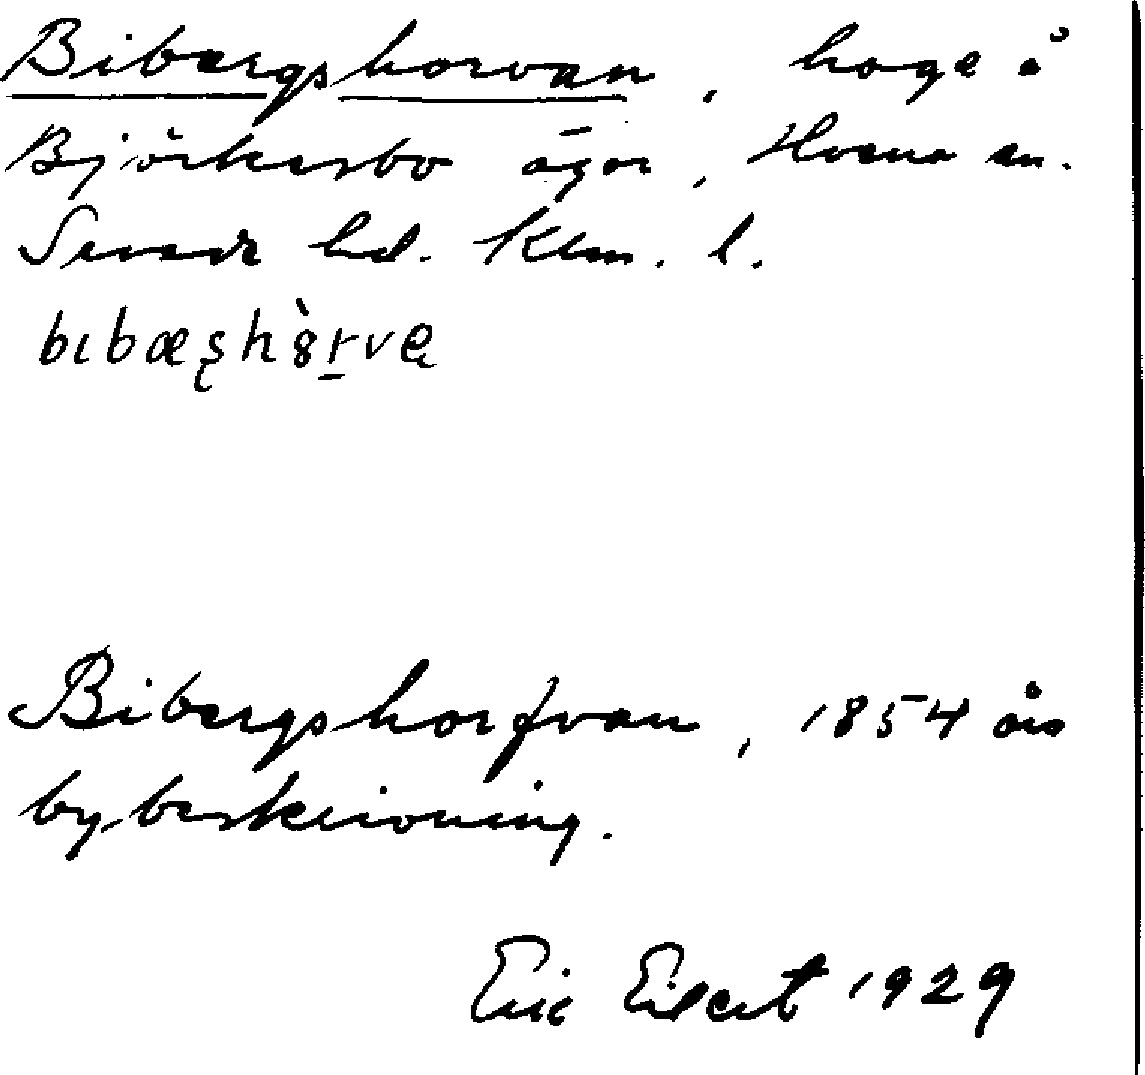 Bibergshorvan, hage å
Björkesbo ägor, Hvena sn.
Sevede hd. Klm. l.
bıbæʂhȣ̀rvą
Bibergshorfvan, 1854 års
bybeskrivning.
Eric Eilert 1929